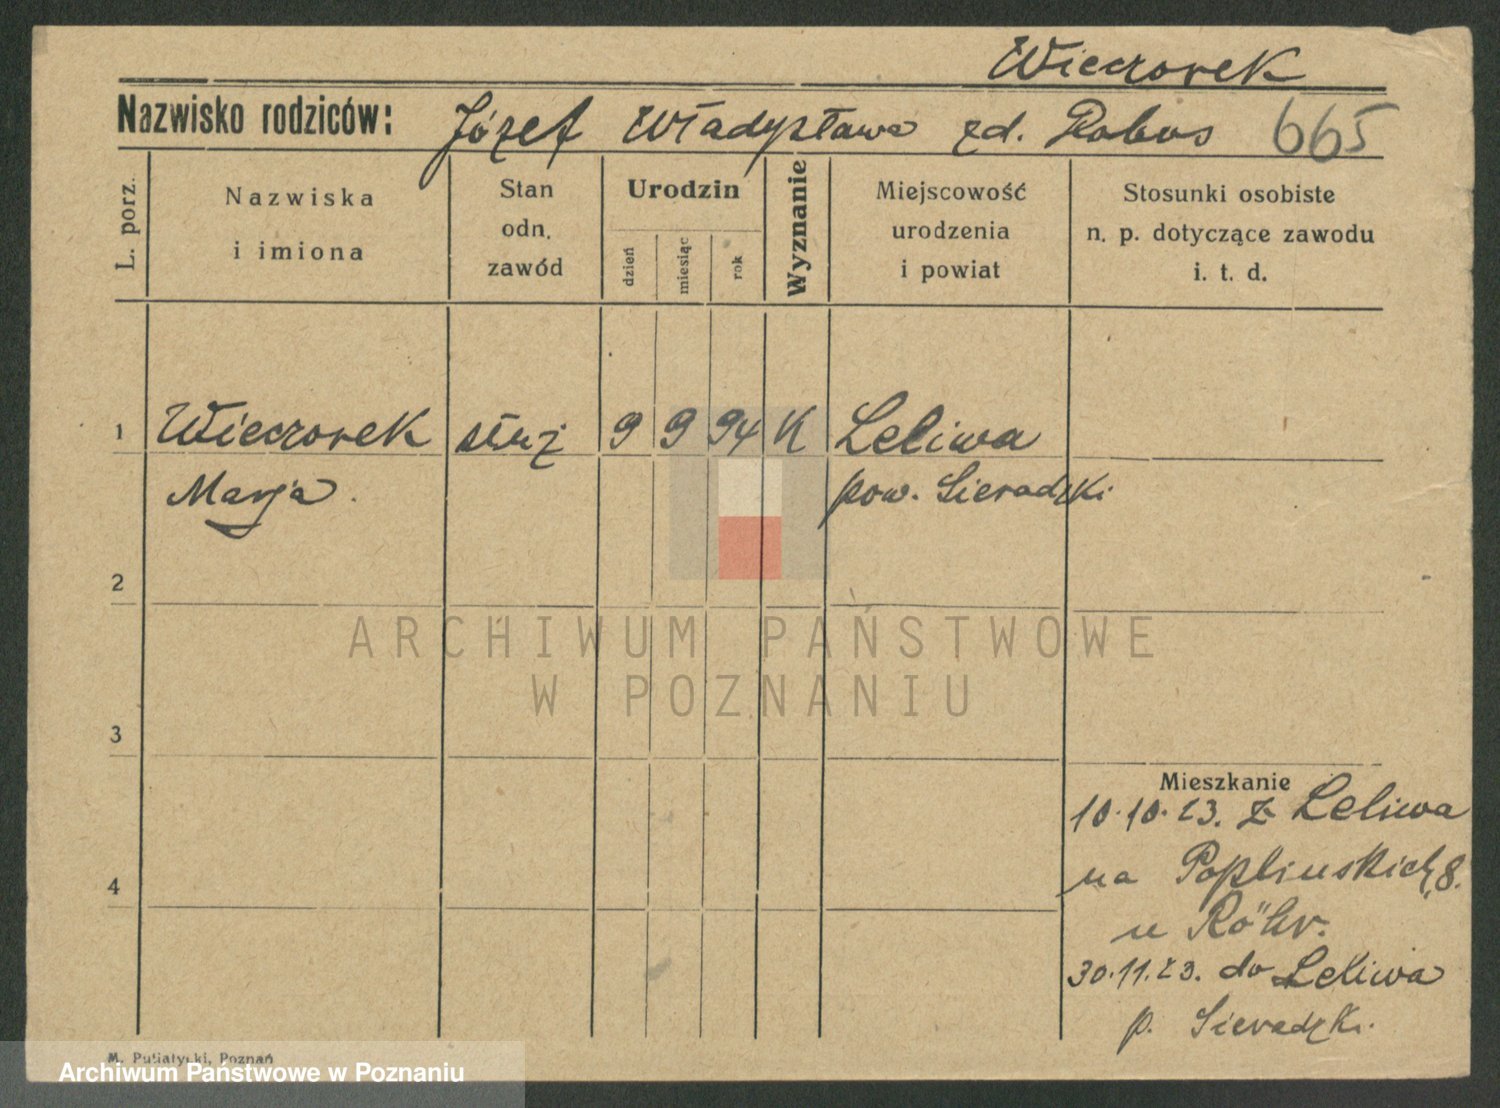 Wieczorek
Nazwisko rodziców: Józef Władysława zd. Robus 665
L. porz.
Nazwiska
i imiona
Stan
odn.
zawód
Urodzin
dzień
miesiąc
rok
Wyznanie
Miejscowość
urodzenia
i powiat
Stosunki osobiste
n. p. dotyczące zawodu
i. t. d.
1 Wieczorek służ 9 9 94 K Leliwa
Marja. pow. Sieradzki
2
3
4
Mieszkanie
10.10.23. z Leliwa
na Poplińskich 8.
u Röhr.
30.11.23. do Leliwa
p. Sieradzki.
M. Putiatycki, Poznań
ARCHIWUM PAŃSTWOWE
W POZNANIU
Archiwum Państwowe w Poznaniu